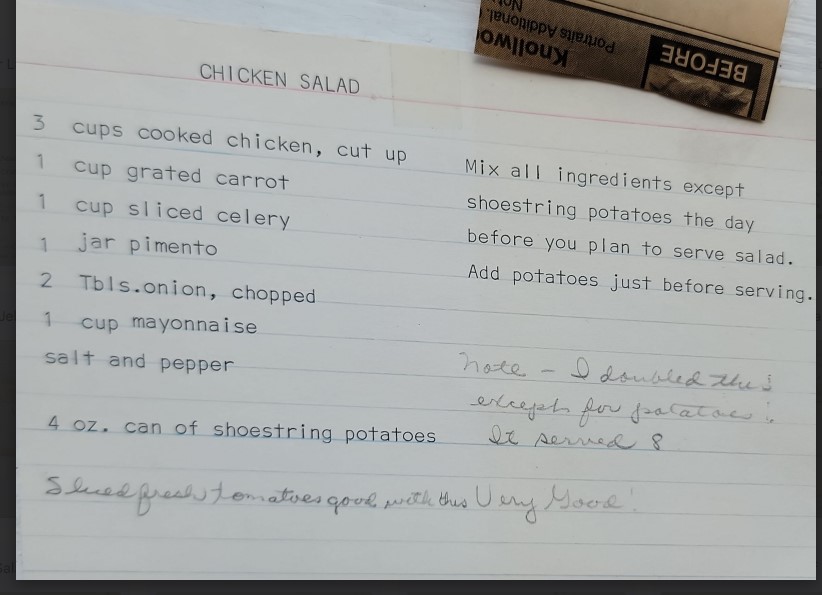 CHICKEN SALAD
3 cups cooked chicken, cut up
1 cup grated carrot
1 cup sliced celery
1 jar pimento
2 Tbls.onion, chopped
1 cup mayonnaise
salt and pepper
4 oz. can of shoestring potatoes
Mix all ingredients except
shoestring potatoes the day
before you plan to serve salad.
Add potatoes just before serving.
Note - I doubled this
except for potatoes.
It served 8
Sliced fresh tomatoes good with this Very Good!
BEFORE
Knollwo
Portraits Additional